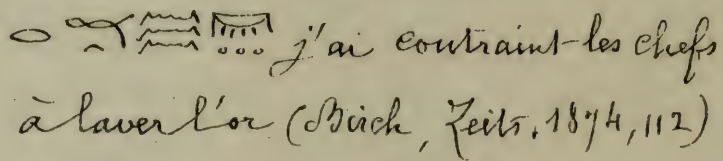 𓂋 𓏏 𓈗 𓋞 j'ai contraint les chefs
à laver l'or (Birch, Zeits. 1874, 112)